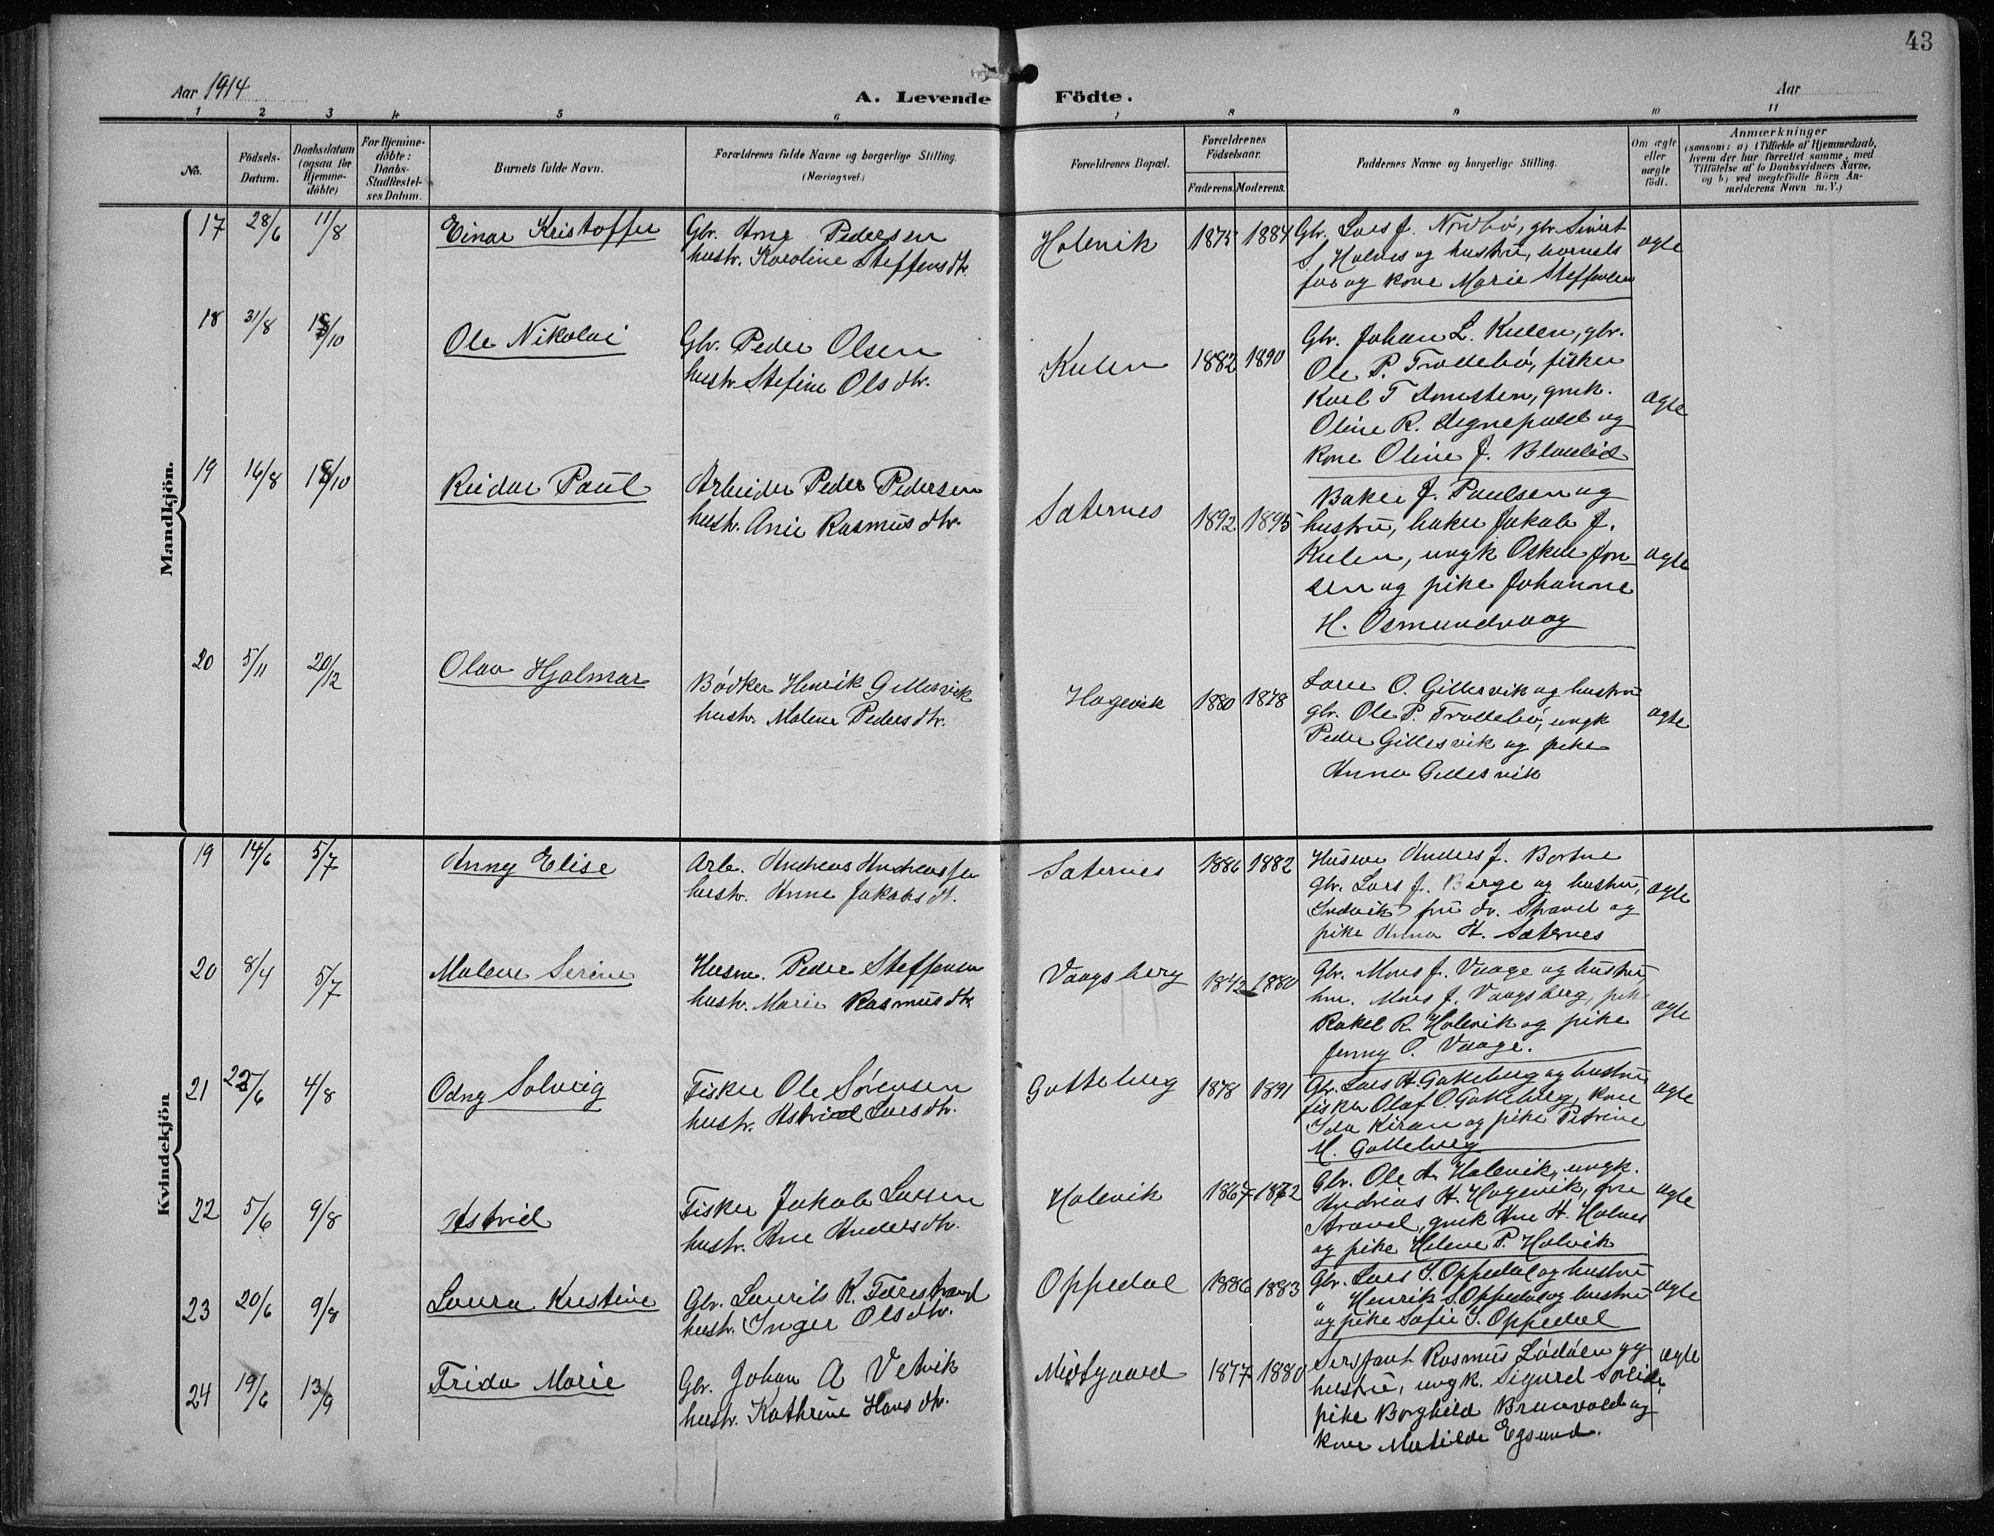 43
Aar 1914
Aar
A. Levende Födte.
1 2 3 4 5 6 7 8 9 10 11
No.
Födsels-Datum.
Daabsdatum (ogsaa for Hjemme-döbte)
For Hjemme-döbte: Daabs-Stadfæstel-ses Datum.
Barnets fulde Navn.
Forældrenes fulde Navne og borgerlige Stilling. (Næringsvei.)
Forældrenes Bopæl.
Forældrenes Födselsaar.
Faderens. Moderens.
Faddernes Navne og borgerlige Stilling.
Om ægte eller uægte födt.
Anmærkninger
(saasom: a) i Tilfælde af Hjemmedaab,
hvem der har forrettet samme, med
Tilföielse af to Daabsvidners Navne,
og b) ved uegtefödte Börn An-
melderens Navn m. V.)
Mandkjön.
17 28/6 11/8 Einar Kristoffer Gbr. Arne Pedersen Holevik 1875 1884 Gbr. Lars J. Nordbø, gbr. Sivert ægte
hustr. Karoline Steffensdtr. S. Holnes og hustru, barnets
far og kone Marie Steffensen
18 31/8 /10 Ole Nikolai Gbr. Peder Olsen Kulen 1882 1890 Gbr. Johan L. Kulen, gbr. ægte
hustr. Stefine Olsdtr. Ole P. Trollebø, fisker
Karl T. , gmk.
Oline R. Hegnepold og
kone Oline J. Blaalid
19 16/8 18/10 Reidar Paul Arbeider Peder Pedersen Sæternes 1892 1895 Baker J. Paulsen og ægte
hustr. Anie Rasmusdtr. hustru, baker Jakob J.
Kulen, ungk Oskar Jon-
sen og pike Johanne
H. Osmundvaag
20 5/11 20/12 Olav Hjalmar Bødker Henrik Gillesvik Hagevik 1880 1878 O. Gillesvik og hustru ægte
hustr. Malene Pedersdtr. gbr. Ole P. Trollebø, ungk
Peder Gillesvik og pike
Anna Gillesvik
Kvindekjön
19 14/6 5/7 Anny Elise Arb. Andreas Andreassen Sæternes 1886 1882 Husm Anders J. Bortne ægte
hustr. Anne Jakobsdt. Gbr. Lars J. Berge og hustru,
Indvik, fru dr. Stravel og
pike Anna H. Sæternes
20 8/4 5/7 Malene Serine Husm. Peder Steffensen Vaagsberg 1842 1880 Gbr. Mons J. Vaage og hustru, ægte
hustr. Marie Rasmusdtr. hm. Mons J. Vaagsberg, pik
Rakel R. Holevik og pike
Jenny O. Vaage.
21 /6 4/8 Odny Solveig Fisker Ole Sørensen Gotteberg 1878 1891 Gbr. Lars H. Gotteberg og hustru ægte
hustr. Astrid Larsdtr. fisker Olaf O. Gotteberg, kone
Ida Kiran og pike Petrine
M. Gotteberg
22 5/6 9/8 Astrid Fisker Jakob Larsen Holevik 1867 1872 Gbr. Ole A. Holevik, ungk. ægte
hustr. Ane Andersdtr. Andreas H. Hagevik, fru
Stravel, gmk Ane H. Holnes
og pike Helene P. Holvik
23 20/6 9/8 Laura Kristine Gbr. Laurits K. Færestrand Oppedal 1886 1883 Gbr. Lars S. Oppedal og hustru ægte
hustr. Inger Olsdtr. " Henrik S. Oppedal og hustru
og pike Sofie S. Oppedal
24 19/6 13/9 Frida Marie Gbr. Johan A Vetvik Midtgaard 1877 1880 Sersjant Rasmus Lødøen og ægte
hustr. Kathrine Hansdtr. hustru, ungk. Sigurd Solid,
pike Borghild Brunvold og
kone Matilde Egsund.